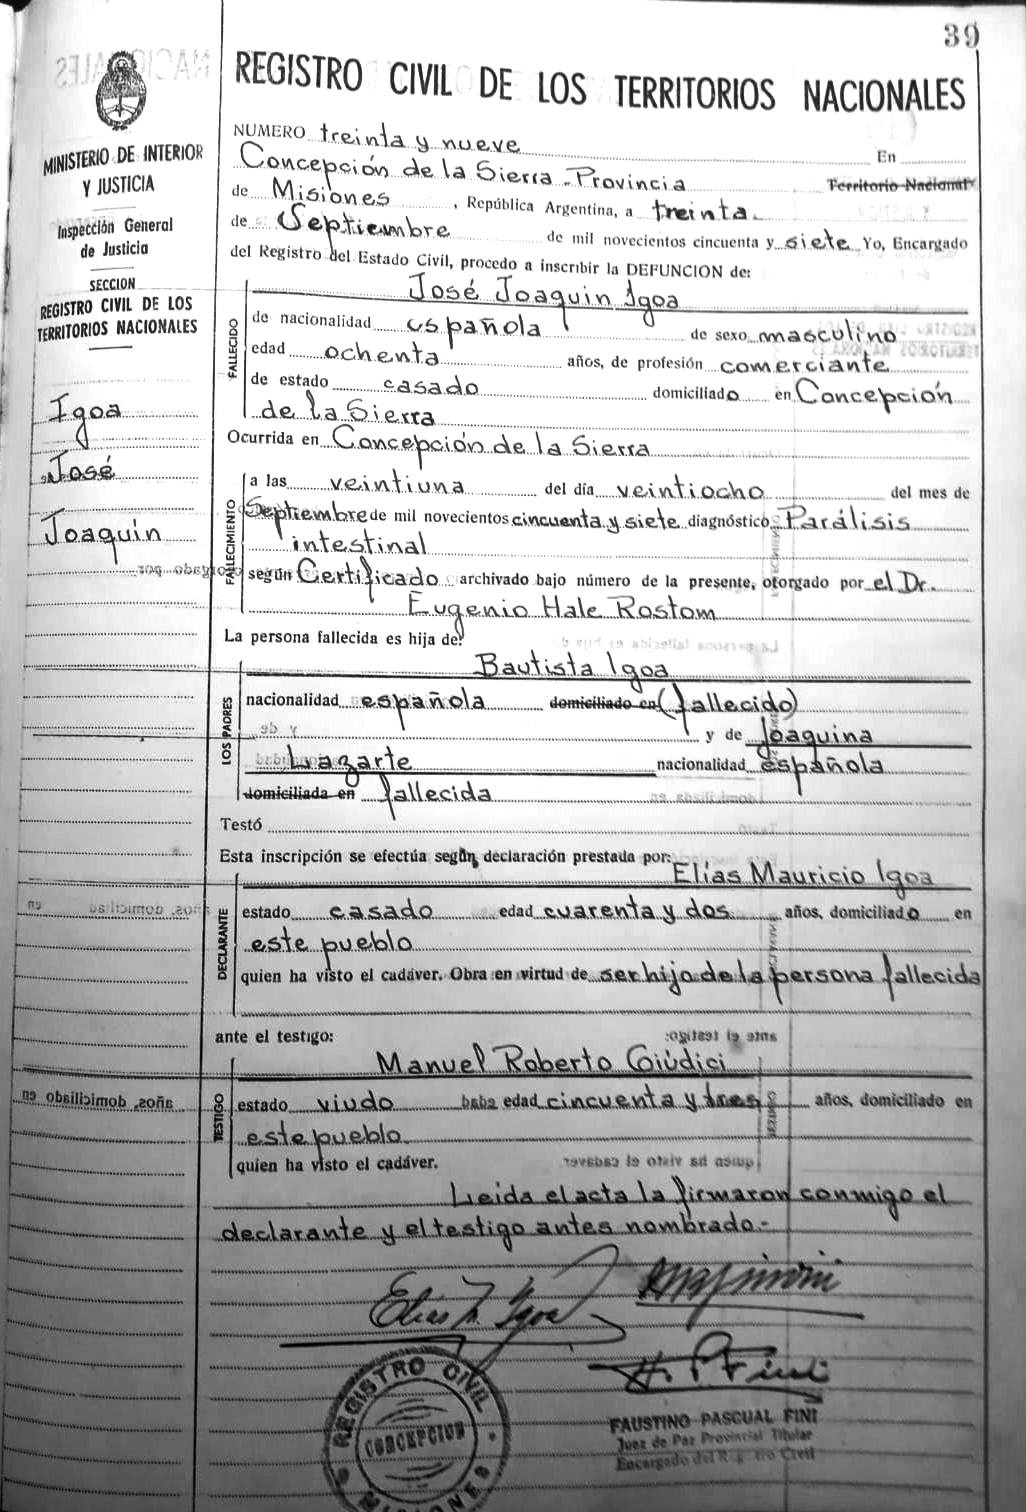 39
REGISTRO CIVIL DE LOS TERRITORIOS NACIONALES
MINISTERIO DE INTERIOR
Y JUSTICIA
Inspección General
de Justicia
SECCION
REGISTRO CIVIL DE LOS
TERRITORIOS NACIONALES
Igoa
José
Joaquin
NUMERO treinta y nueve En
Concepción de la Sierra - Provincia Territorio Nacional
de Misiones, República Argentina, a treinta
de Septiembre de mil novecientos cincuenta y siete Yo, Encargado
del Registro del Estado Civil, procedo a inscribir la DEFUNCION de:
FALLECIDO
José Joaquin Igoa
de nacionalidad española de sexo masculino
edad ochenta años, de profesión comerciante
de estado casado domiciliado en Concepción
de la Sierra
Ocurrida en Concepción de la Sierra
FALLECIMIENTO
a las veintiuna del día veintiocho del mes de
Septiembre de mil novecientos cincuenta y siete diagnóstico Parálisis
intestinal
según Certificado archivado bajo número de la presente, otorgado por el Dr.
Eugenio Hale Rostom
La persona fallecida es hija de:
LOS PADRES
Bautista Igoa
nacionalidad española domiciliado en (fallecido)
y de Joaquina
Lazarte nacionalidad española
domiciliada en fallecida
Testó
Esta inscripción se efectúa según declaración prestada por:
DECLARANTE
Elías Mauricio Igoa
estado casado edad cuarenta y dos años, domiciliado en
este pueblo
quien ha visto el cadáver. Obra en virtud de ser hijo de la persona fallecida
ante el testigo:
TESTIGO
Manuel Roberto Giúdici
estado viudo edad cincuenta y tres años, domiciliado en
este pueblo
quien ha visto el cadáver.
Leida el acta la firmaron conmigo el
declarante y el testigo antes nombrado.-
Elías M. Igoa
FAUSTINO PASCUAL FINI
Juez de Paz Provincial Titular
Encargado del Registro Civil
REGISTRO CIVIL
CONCEPCION
MISIONES